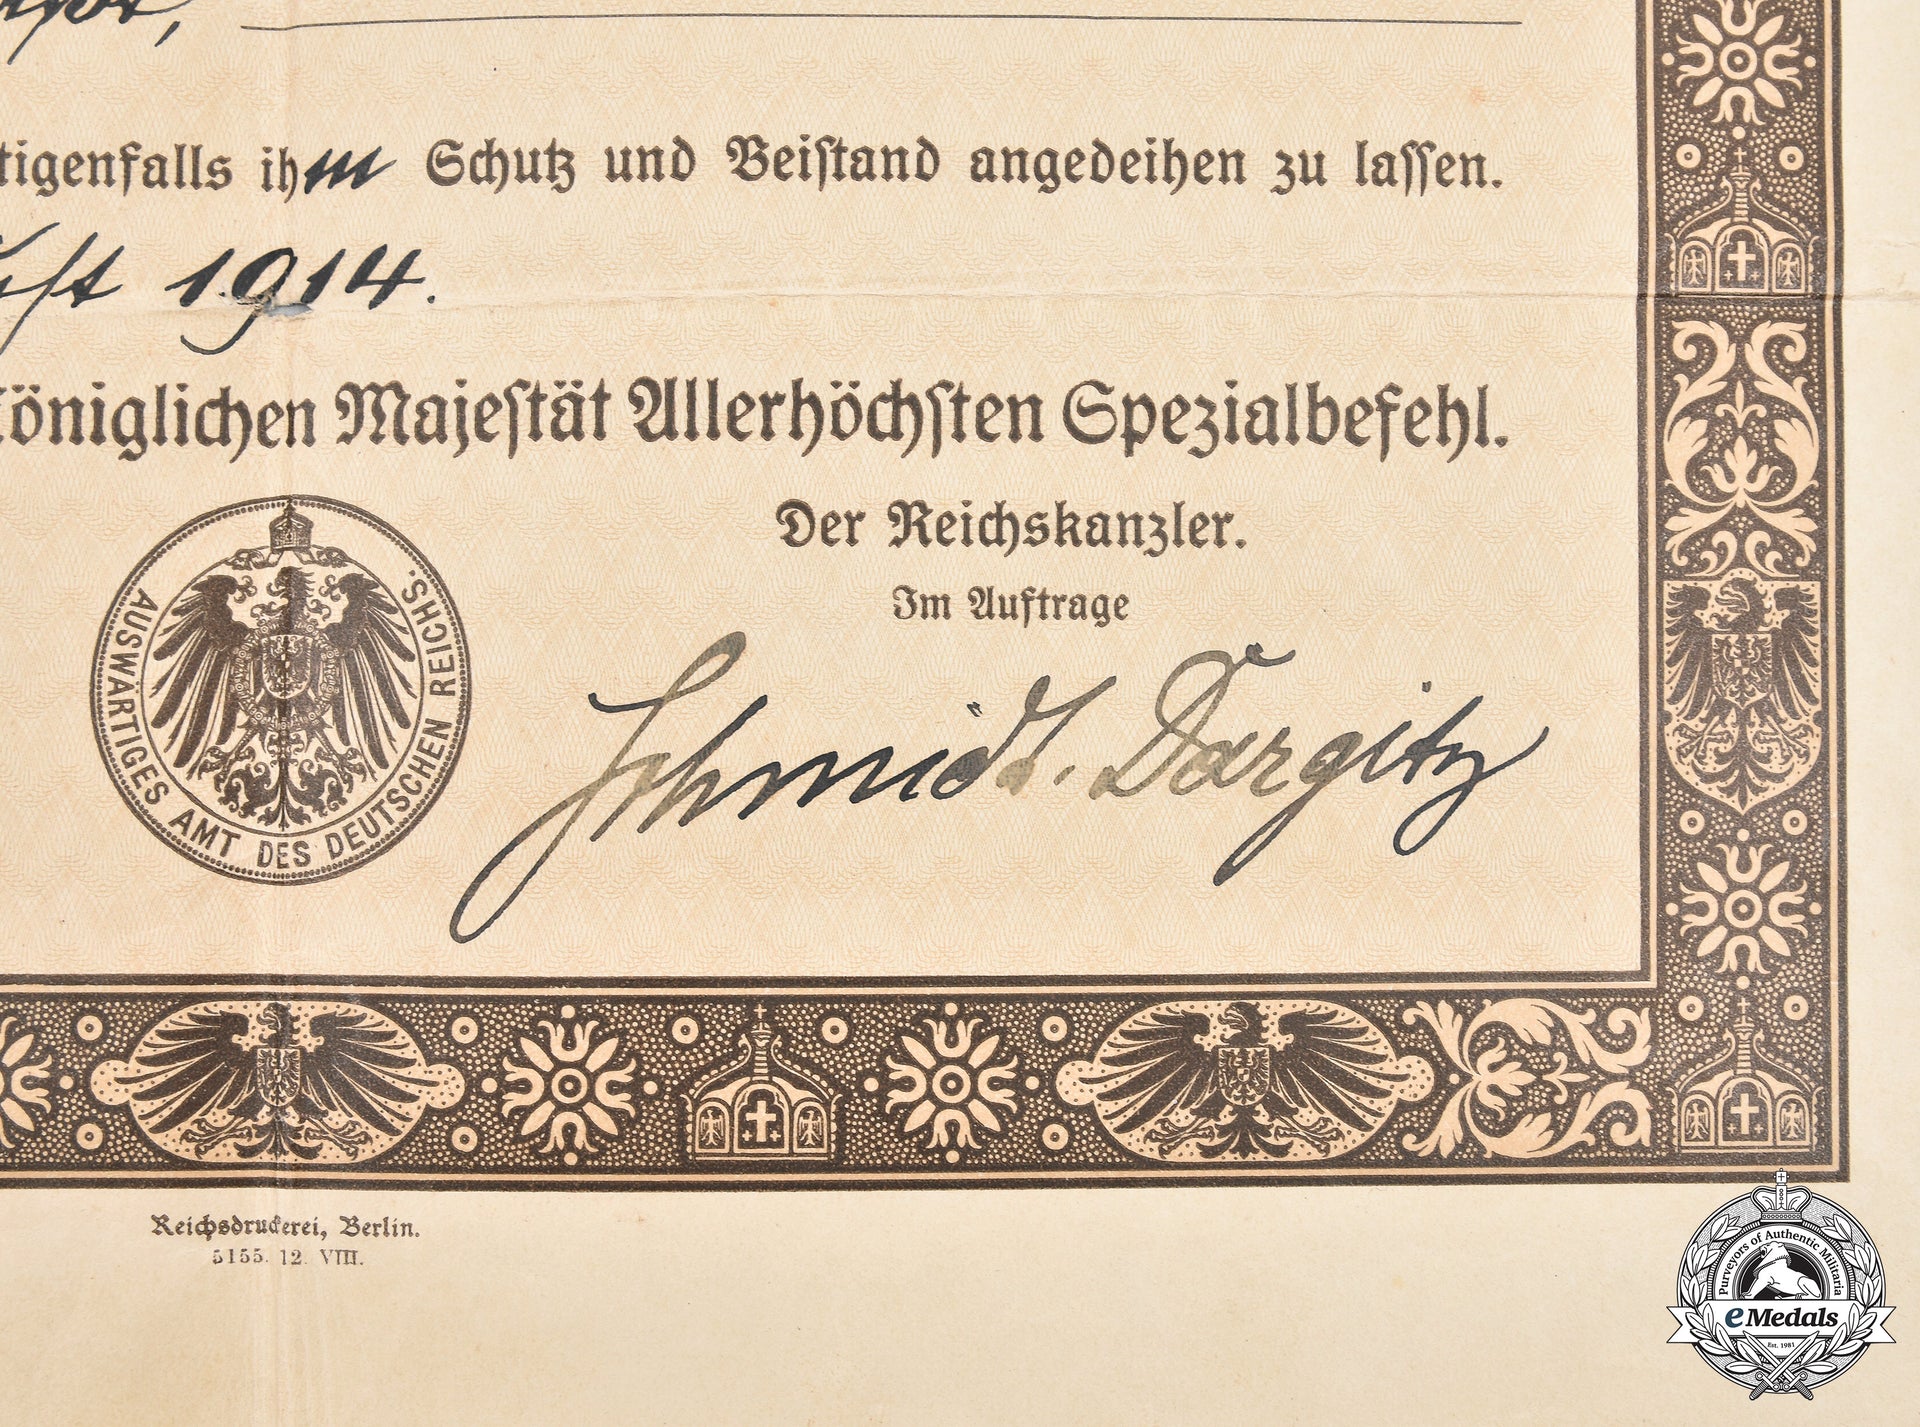 tigenfalls ihm Schutz und Beistand angedeihen zu lassen.
1914.
Königlichen Majestät Allerhöchsten Spezialbefehl.
Der Reichskanzler.
Im Auftrage
AUSWÄRTIGES AMT DES DEUTSCHEN REICHS.
Schmidt. Dargitz
Reichsdruckerei, Berlin.
5155. 12. VIII.
Purveyors of Authentic Militaria
eMedals
Est. 1981